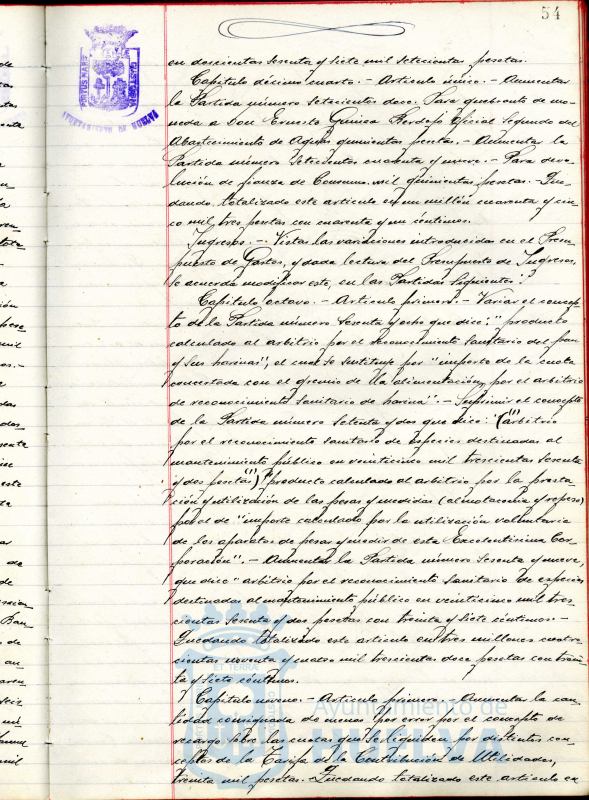 54
en doscientas sesenta y siete mil setecientas pesetas.
Capítulo décimo cuarto.- Artículo único.- Aumentar
la Partida número setecientos doce. Para quebranto de mo-
neda a Don Ernesto Oficial segundo del
Abastecimiento de Aguas quinientas pesetas.- Aumentar la
Partida número setecientos cuarenta y nueve.- Para devo-
lución de fianza de Consumos mil quinientas pesetas.- Que-
dando totalizado este artículo en un millón cuarenta y cin-
co mil tres pesetas con cuarenta y un céntimos.
Ingresos.-. Vistas las variaciones introducidas en el Presu-
puesto de Gastos, y dada lectura del Presupuesto de Ingresos,
se acuerda modificar este, en las Partidas siguientes:
Capítulo octavo.- Artículo primero.- Variar el concep-
to de la Partida número sesenta y ocho que dice: "producto
calculado al arbitrio por el reconocimiento sanitario del pan
y sus harinas", el cual se sustituye por "importe de la cuota
concertada con el gremio de la alimentación, por el arbitrio
de reconocimiento sanitario de harina".- Suprimir el concepto
de la Partida número setenta y dos que dice: "(arbitrio
por el reconocimiento sanitario de especies destinadas al
mantenimiento público en veinticinco mil trescientas sesenta
y dos pesetas) "producto calculado al arbitrio por la presta-
ción y utilización de las pesas y medidas (almotacenia y repeso)
por el de "importe calculado por la utilización voluntaria
de los aparatos de pesar y medir de esta Excelentísima Cor-
poración".- Aumentar la Partida número sesenta y nueve,
que dice "arbitrio por el reconocimiento sanitario de especies
destinadas al mantenimiento público en veinticinco mil tres-
cientas sesenta y dos pesetas con treinta y siete céntimos.-
Quedando totalizado este artículo en tres millones cuatro-
cientas noventa y cuatro mil trescientas doce pesetas con trein-
ta y siete céntimos.
Capítulo noveno.- Artículo primero.- Aumentar la can-
tidad consignada de menos por error por el concepto de
recargo sobre las cuotas que se liquiden por distintos con-
ceptos de la Tarifa de la Contribución de Utilidades,
treinta mil pesetas.- Quedando totalizado este artículo en
PORTUS MARIS
AYUNTAMIENTO DE HUELVA
ET TERRA
Ayuntamiento de
HUELVA